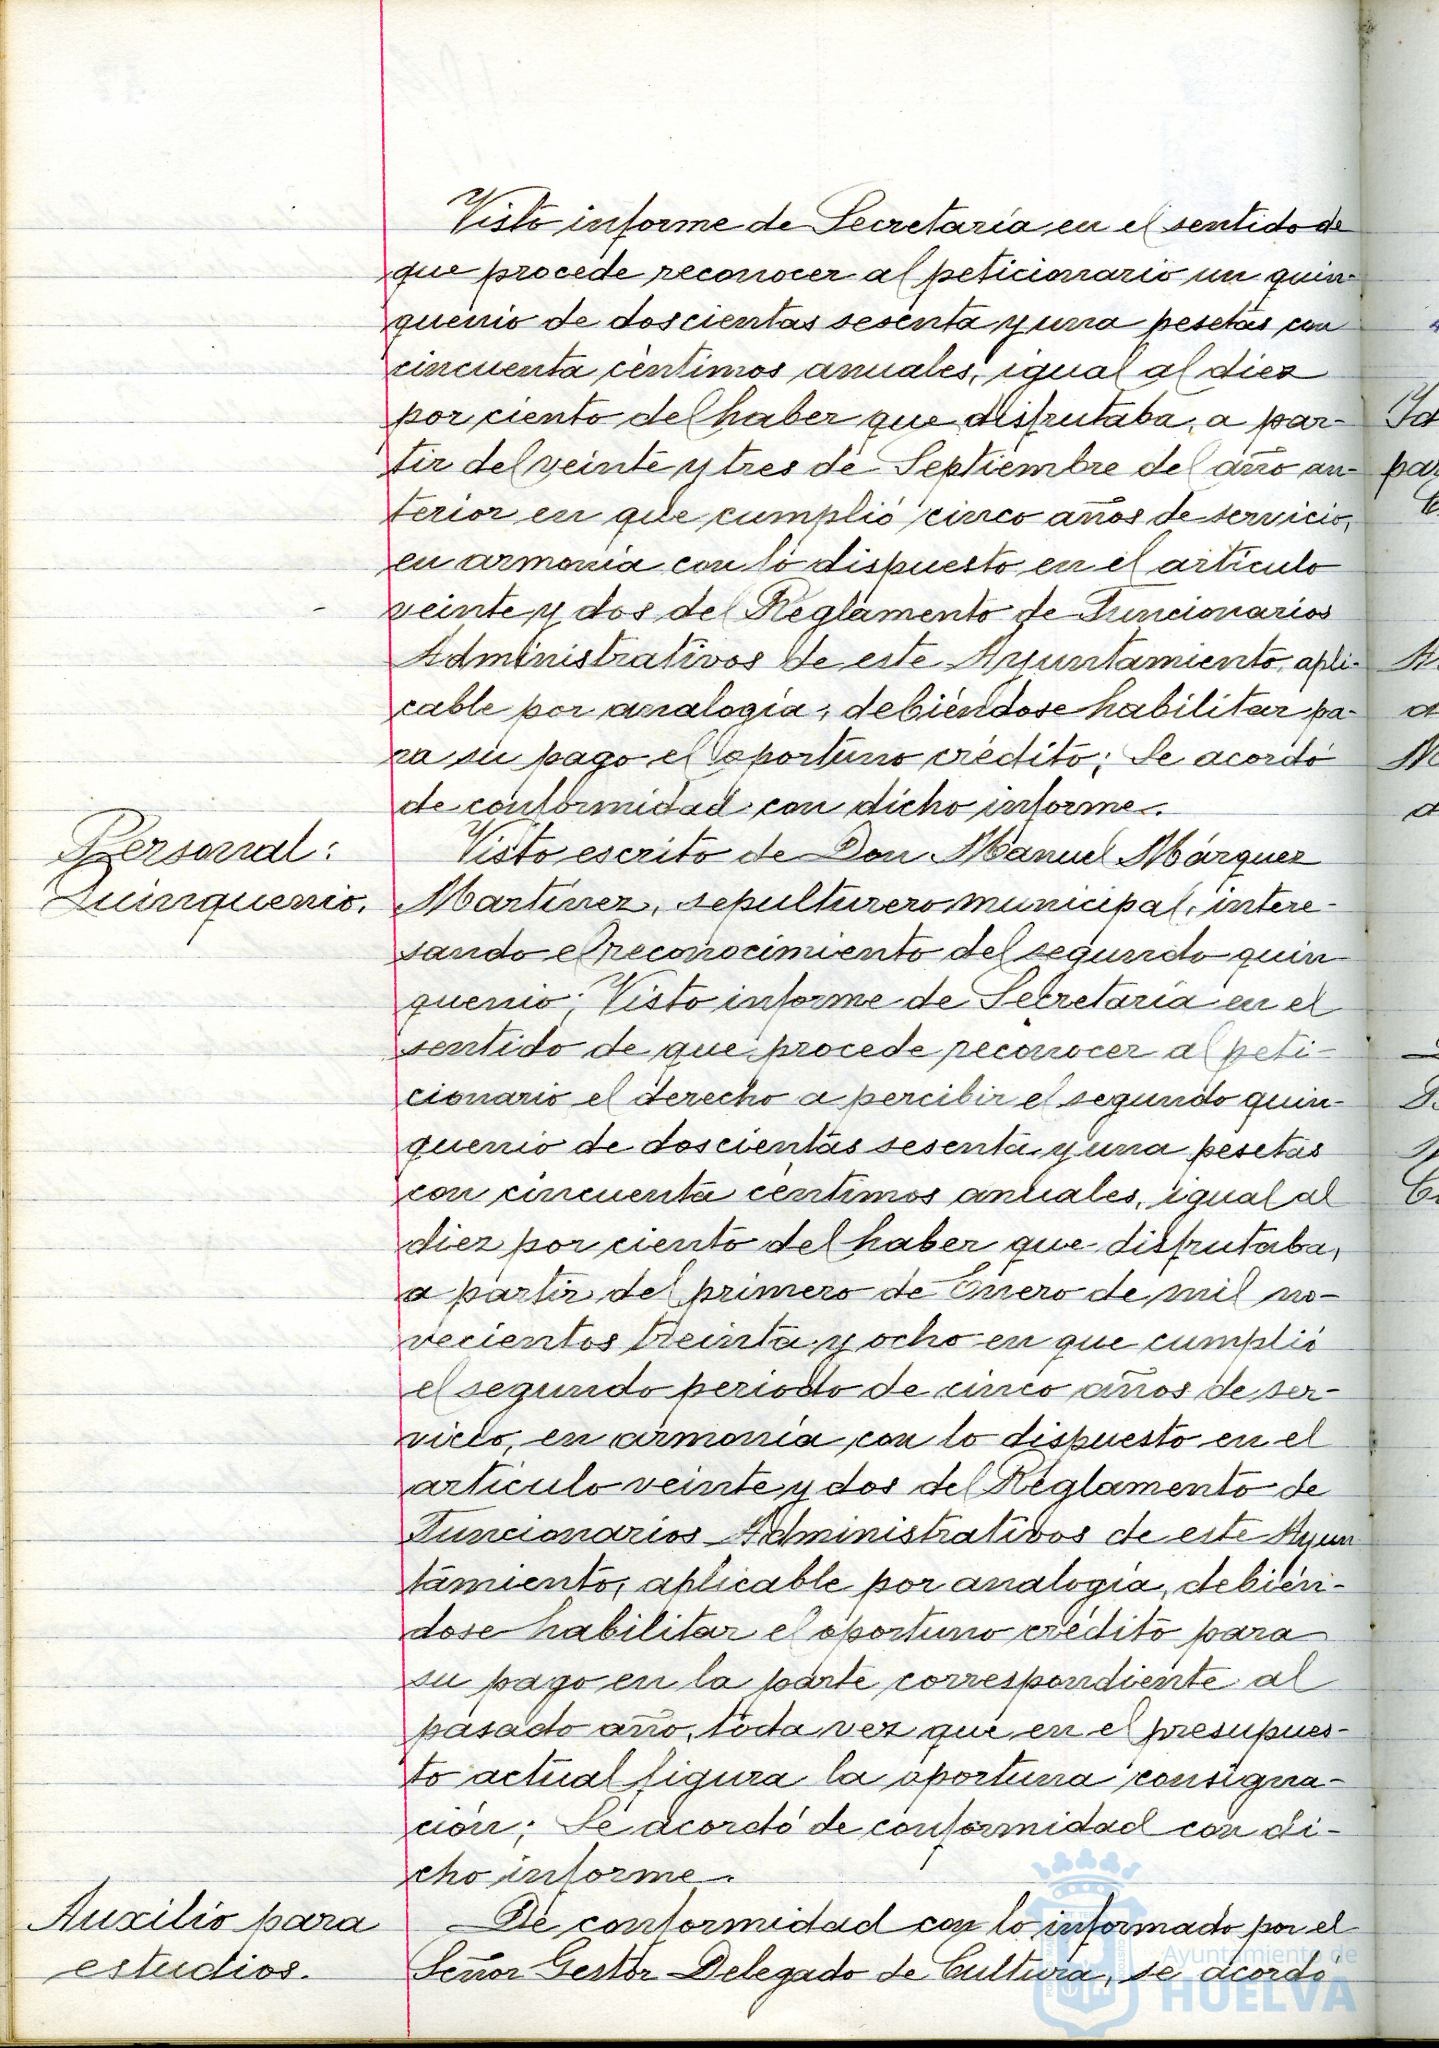 Visto informe de Secretaría en el sentido de
que procede reconocer al peticionario un quin-
quenio de doscientas sesenta y una pesetas con
cincuenta céntimos anuales, igual al diez
por ciento del haber que disfrutaba, a par-
tir del veinte y tres de Septiembre del año an-
terior en que cumplió cinco años de servicio,
en armonía con lo dispuesto en el artículo
veinte y dos del Reglamento de Funcionarios
Administrativos de este Ayuntamiento, apli-
cable por analogía, debiéndose habilitar pa-
ra su pago el oportuno crédito; Se acordó
de conformidad con dicho informe.
Personal:
Quinquenio.
Visto escrito de Don Manuel Márquez
Martínez, sepulturero municipal, intere-
sando el reconocimiento del segundo quin-
quenio; Visto informe de Secretaría en el
sentido de que procede reconocer al peti-
cionario el derecho a percibir el segundo quin-
quenio de doscientas sesenta y una pesetas
con cincuenta céntimos anuales, igual al
diez por ciento del haber que disfrutaba,
a partir del primero de Enero de mil no-
vecientos treinta y ocho en que cumplió
el segundo periodo de cinco años de ser-
vicio, en armonía con lo dispuesto en el
artículo veinte y dos del Reglamento de
Funcionarios Administrativos de este Ayun
tamiento, aplicable por analogía, debién-
dose habilitar el oportuno crédito para
su pago en la parte correspondiente al
pasado año, toda vez que en el presupues-
to actual figura la oportuna consigna-
ción; Se acordó de conformidad con di-
cho informe.
Auxilio para
estudios.
De conformidad con lo informado por el
Señor Gestor Delegado de Cultura, se acordó
Ayuntamiento de
HUELVA